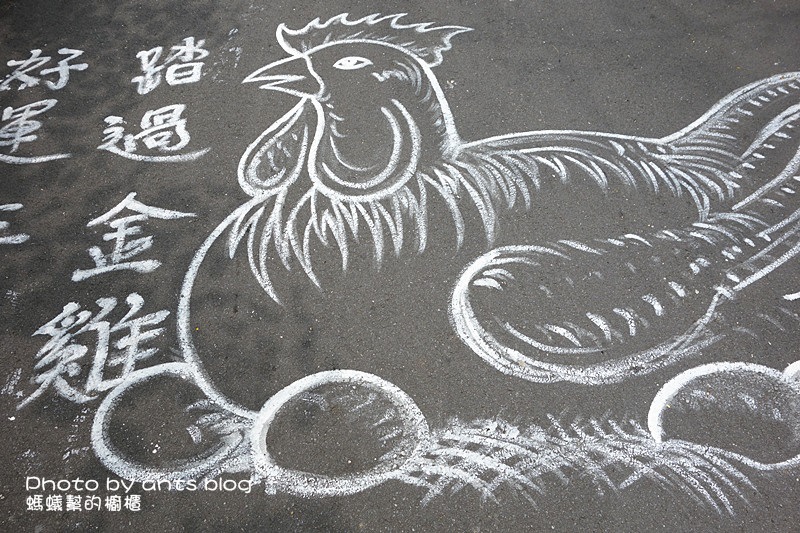 踏過金雞
好運
Photo by ants blog
螞蟻幫的櫥櫃